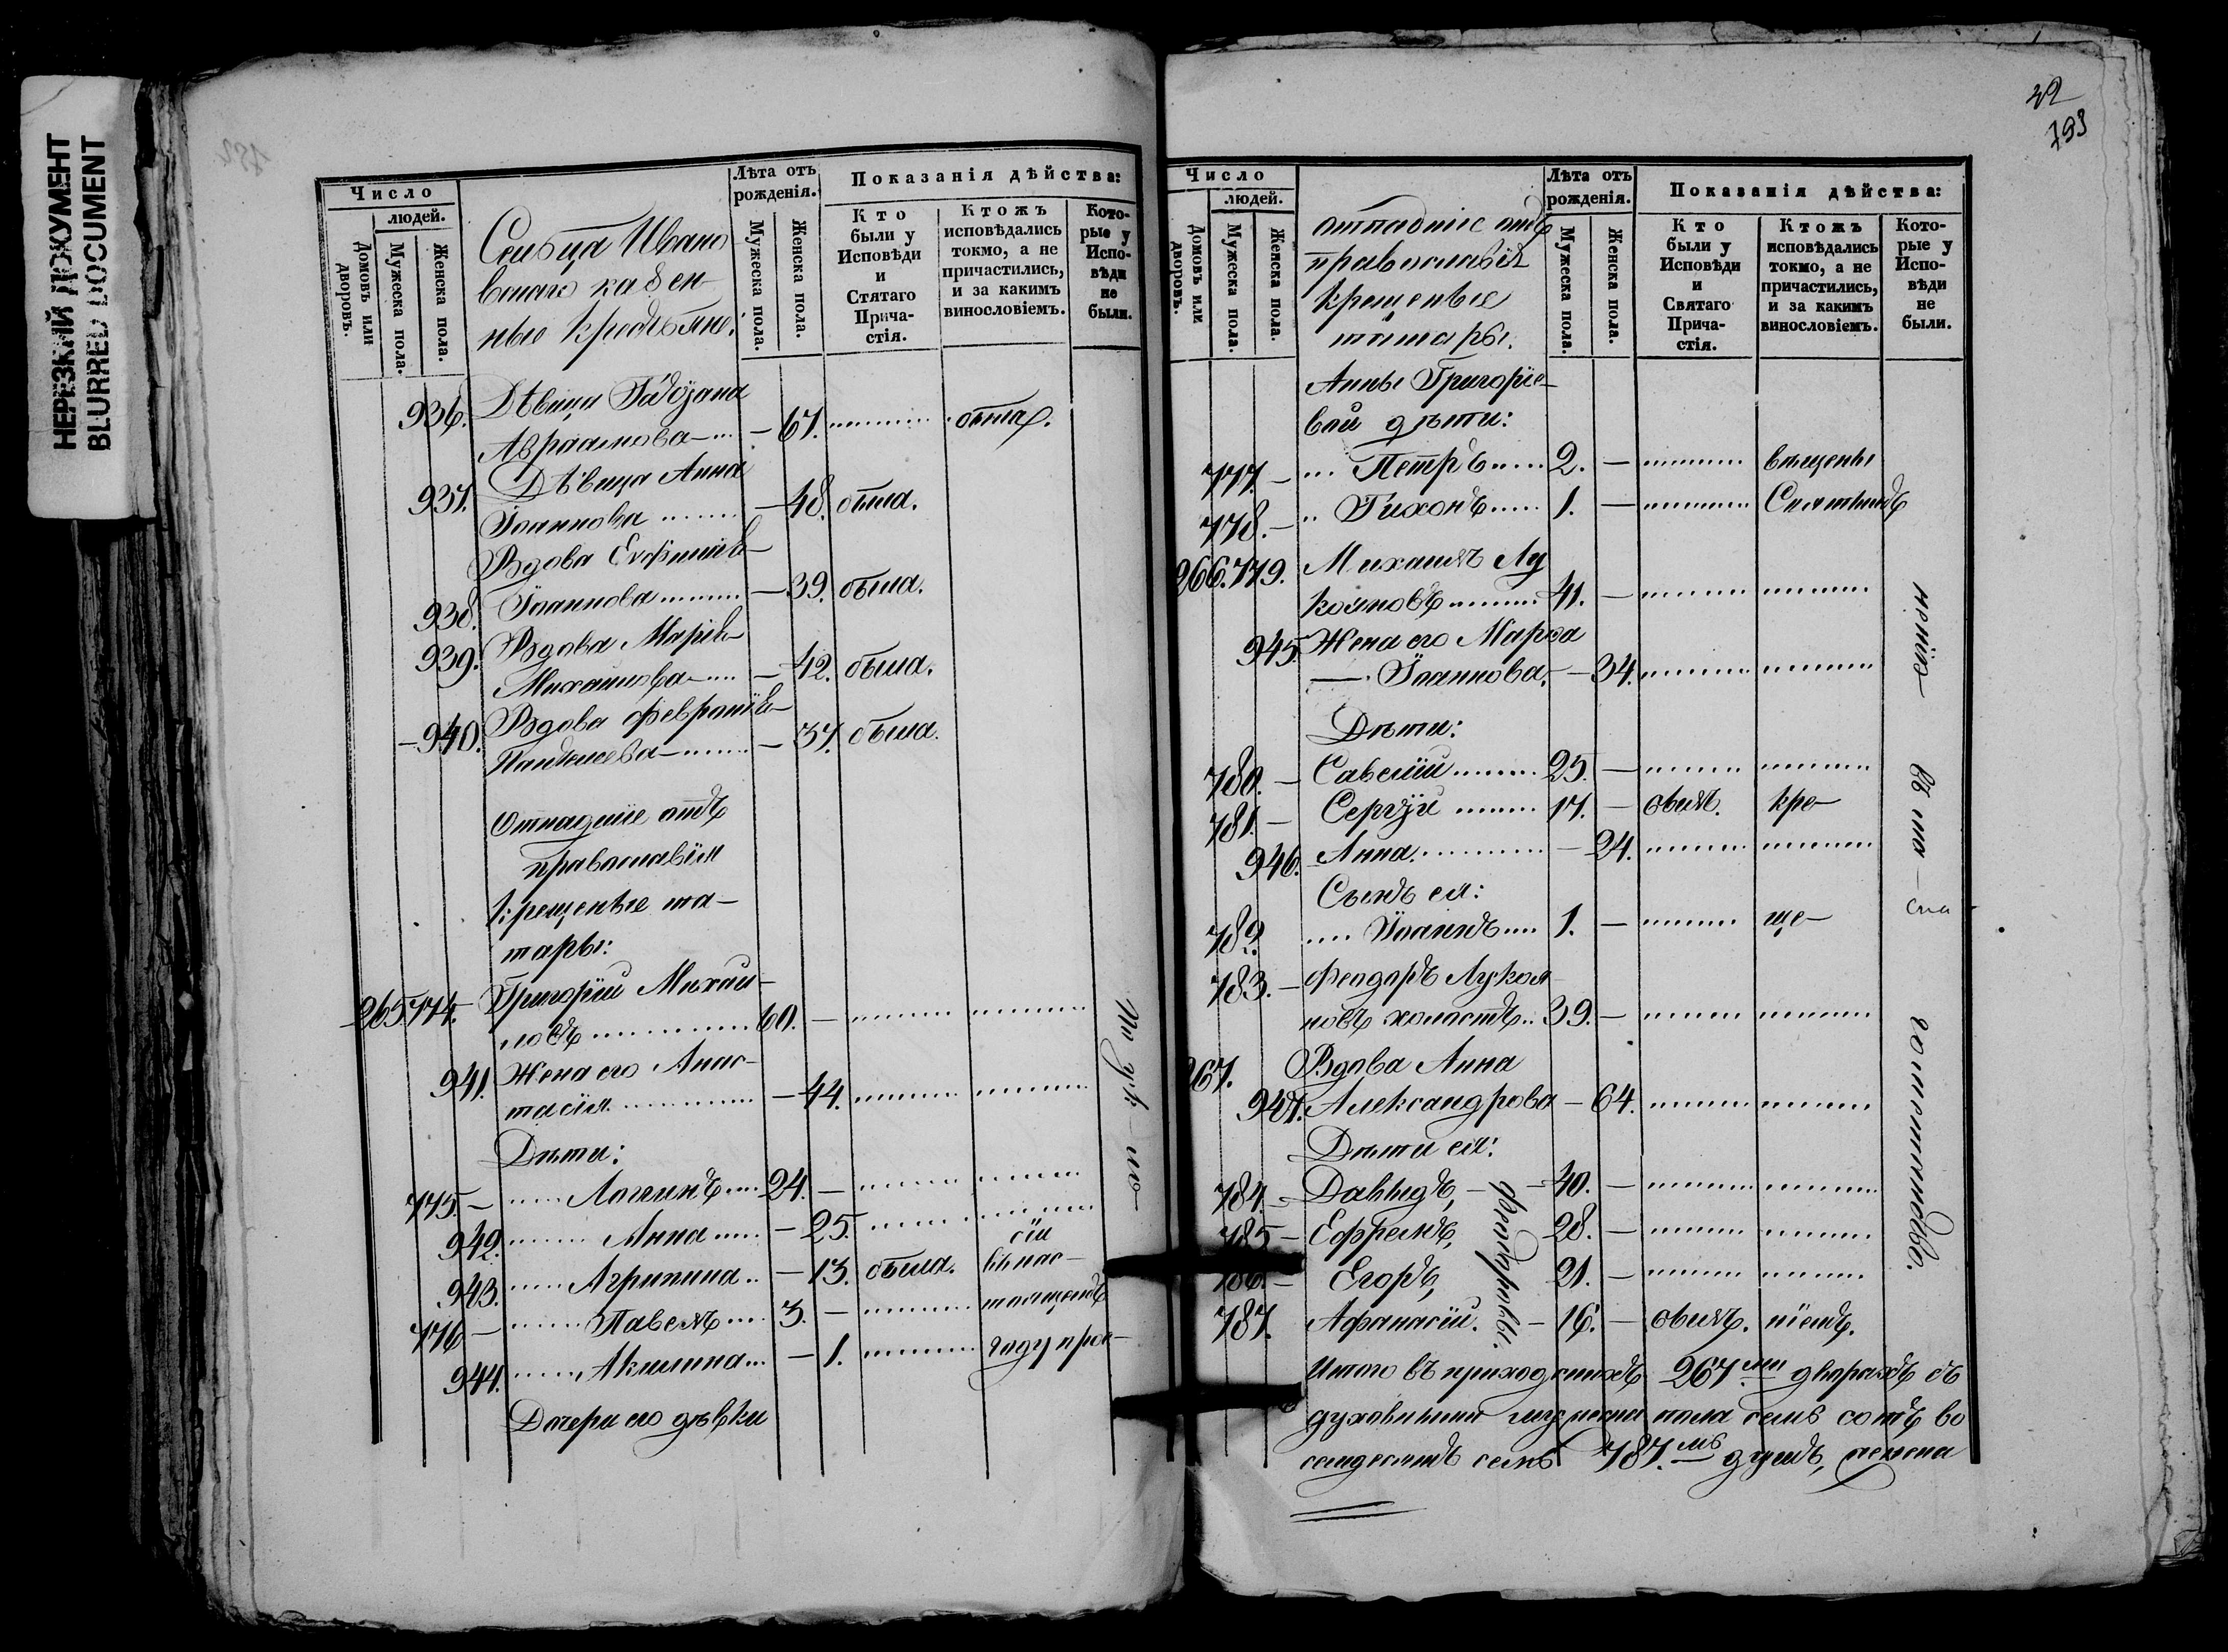 НЕРЕЗКИЙ ДОКУМЕНТ
BLURRED DOCUMENT
Число
людей.
Домовъ или дворовъ.
Мужеска пола.
Женска пола.
Сельца Ивано
вскаго казен
ные крестьяне:
Лѣта отъ
рожденія.
Мужеска пола.
Женска пола.
Показанія дѣйства:
Кто
были у
Исповѣди
и
Стятаго
Прича-
стія.
Ктожъ
исповѣдались
токмо, а не
причастились,
и за какимъ
винословіемъ.
Кото-
рые у
Испо-
вѣди
не
были.
936. Дѣвица
Авраамова — 67. отпа.
937. Дѣвица Анна
Іоаннова — 48. была.
Вдова Евфимія
938. Іоаннова — 39. была.
939. Вдова Марія
Михаилова — 42. была.
940. Вдова Февронія
— 37. была.
Отпадшіе отъ
православія
крещеные та-
тары:
265 774. Григорій Михаи-
ловъ 60. —
941. Жена его Анас-
тасія — 44.
Дѣти:
775. — Логинъ 24. —
942. Анна — 25.
сіи
943. Агрипина — 13. была. въ нас-
776 — Павелъ 3. — тоящемъ
944. Акилина — 1. году прос-
Дочери его дѣвки
42
793
Число
людей.
Домовъ или дворовъ.
Мужеска пола.
Женска пола.
отпадшіе отъ
православія
крещеные
татары.
Лѣта отъ
рожденія.
Мужеска пола.
Женска пола.
Показанія дѣйства:
Кто
были у
Исповѣди
и
Святаго
Прича-
стія.
Ктожъ
исповѣдались
токмо, а не
причастились,
и за какимъ
винословіемъ.
Кото-
рые у
Испо-
вѣди
не
были.
Анны Григоріе-
вой дѣти:
777. — Петръ 2. — вѣщены
778. — Тихонъ 1. —
266. 779. Михаилъ Лу
кояновъ 41. —
945. Жена его Марѳа
Іоаннова. — 34.
Дѣти:
780. — Савелій 25. —
781. — Сергій 17. — былъ. кре-
946. Анна — 24.
Сынъ ея:
782. Іоаннъ 1. — ще-
783. — Феодоръ Лукоя
новъ холостъ 39. —
267. Вдова Анна
947. Александрова — 64.
Дѣти ея:
784. — Давыдъ, — 40. —
785 — Ефремъ, 28. —
786. — Егоръ, 21. —
787. Афанасій. — 16. — былъ. ніемъ.
Феодоровы.
Итого въ приходскихъ 267ми дворахъ съ
духовными мужеска пола семь сотъ во
семдесятъ семь 787.мь душъ, женска